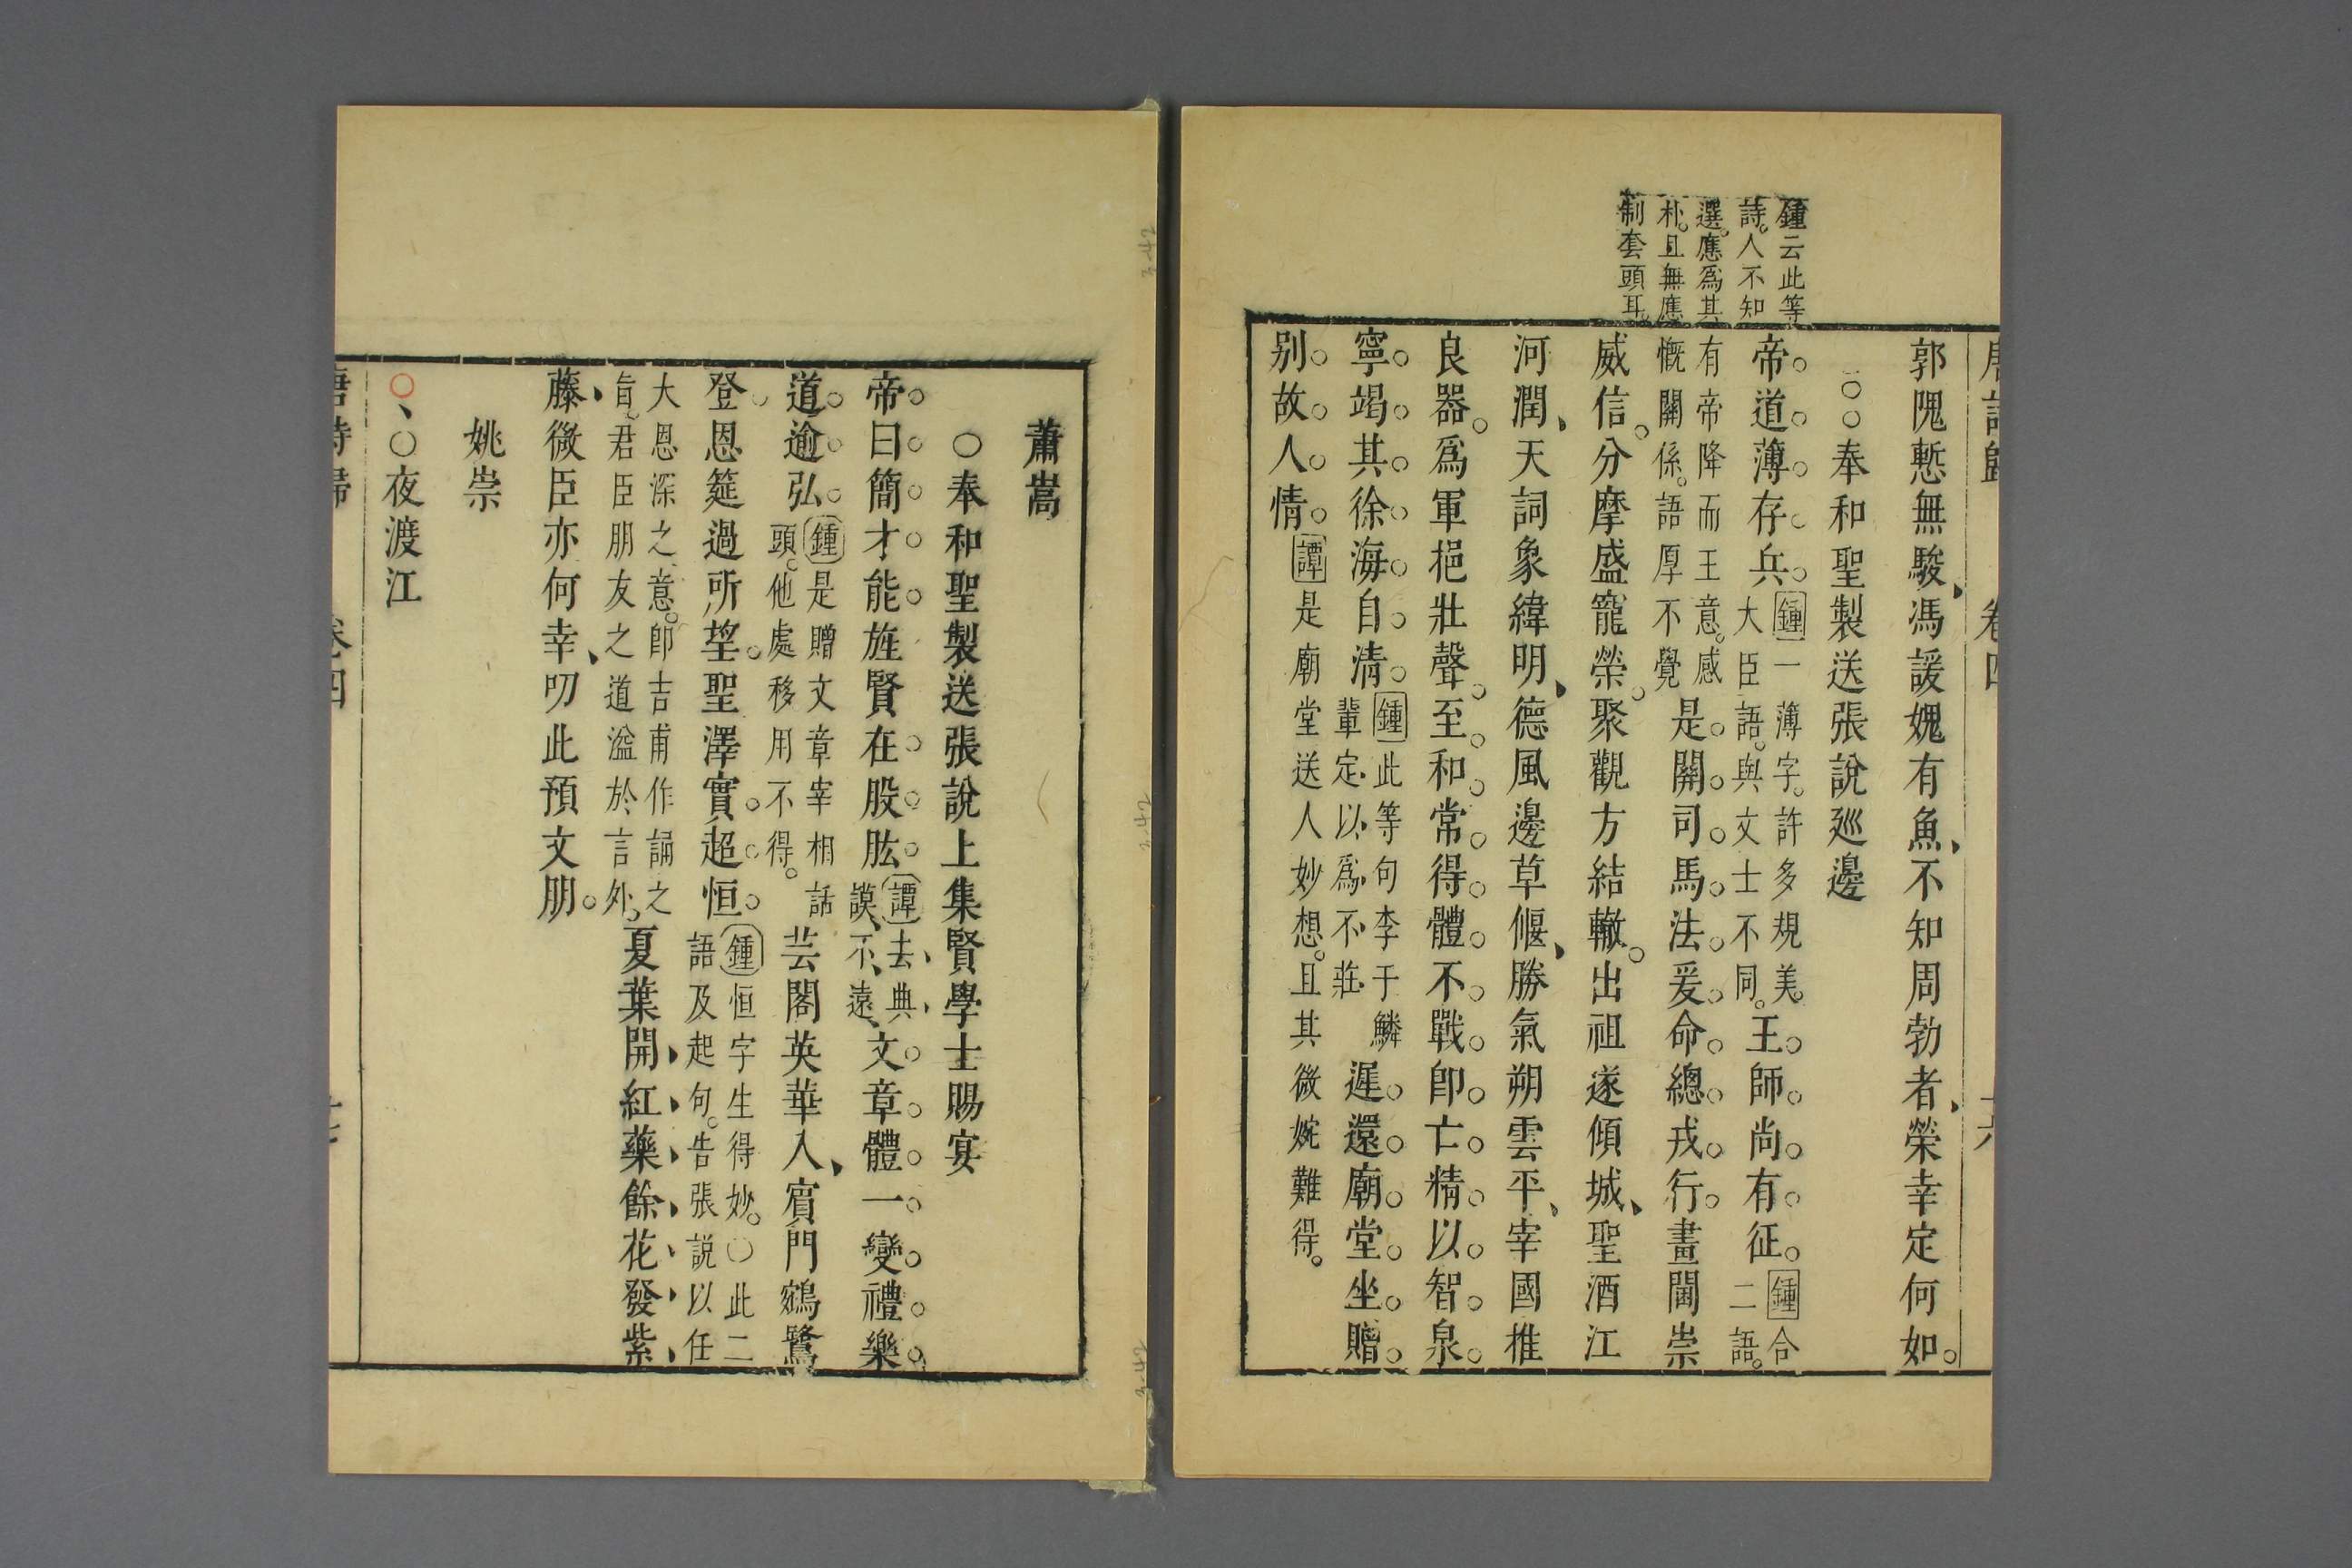 唐詩歸 卷四 十六
鍾云此等
詩人不知
選應爲其
朴且無應
制套頭耳
郭隗慙無駿馮諼媿有魚不知周勃者榮幸定何如
○○奉和聖製送張說廵邊
帝道薄存兵鍾一薄字許多規美
大臣語與文士不同王師尚有征鍾合
二語
有帝降而王意感
慨關係語厚不覺是關司馬法爰命總戎行畫閫崇
威信分摩盛寵榮聚觀方結轍出祖遂傾城聖酒江
河潤天詞象緯明德風邊草偃勝氣朔雲平宰國推
良器爲軍挹壯聲至和常得體不戰卽亡精以智泉
寧竭其徐海自清鍾此等句李于鱗
輩定以爲不莊遲還廟堂坐贈
别故人情譚是廟堂送人妙想且其微婉難得
蕭嵩
○奉和聖製送張說上集賢學士賜宴
帝曰簡才能旌賢在股肱譚去典
謨不遠文章體一變禮樂
道逾弘鍾是贈文章宰相話
頭他處移用不得芸閣英華入賓門鵷鷺
登恩筵過所望聖澤實超恒鍾恒字生得妙○此二
語及起句告張說以任
大恩深之意卽吉甫作誦之
旨君臣朋友之道溢於言外夏葉開紅藥餘花發紫
藤微臣亦何幸叨此預文朋
姚崇
○、○夜渡江
唐詩歸 卷四 十七